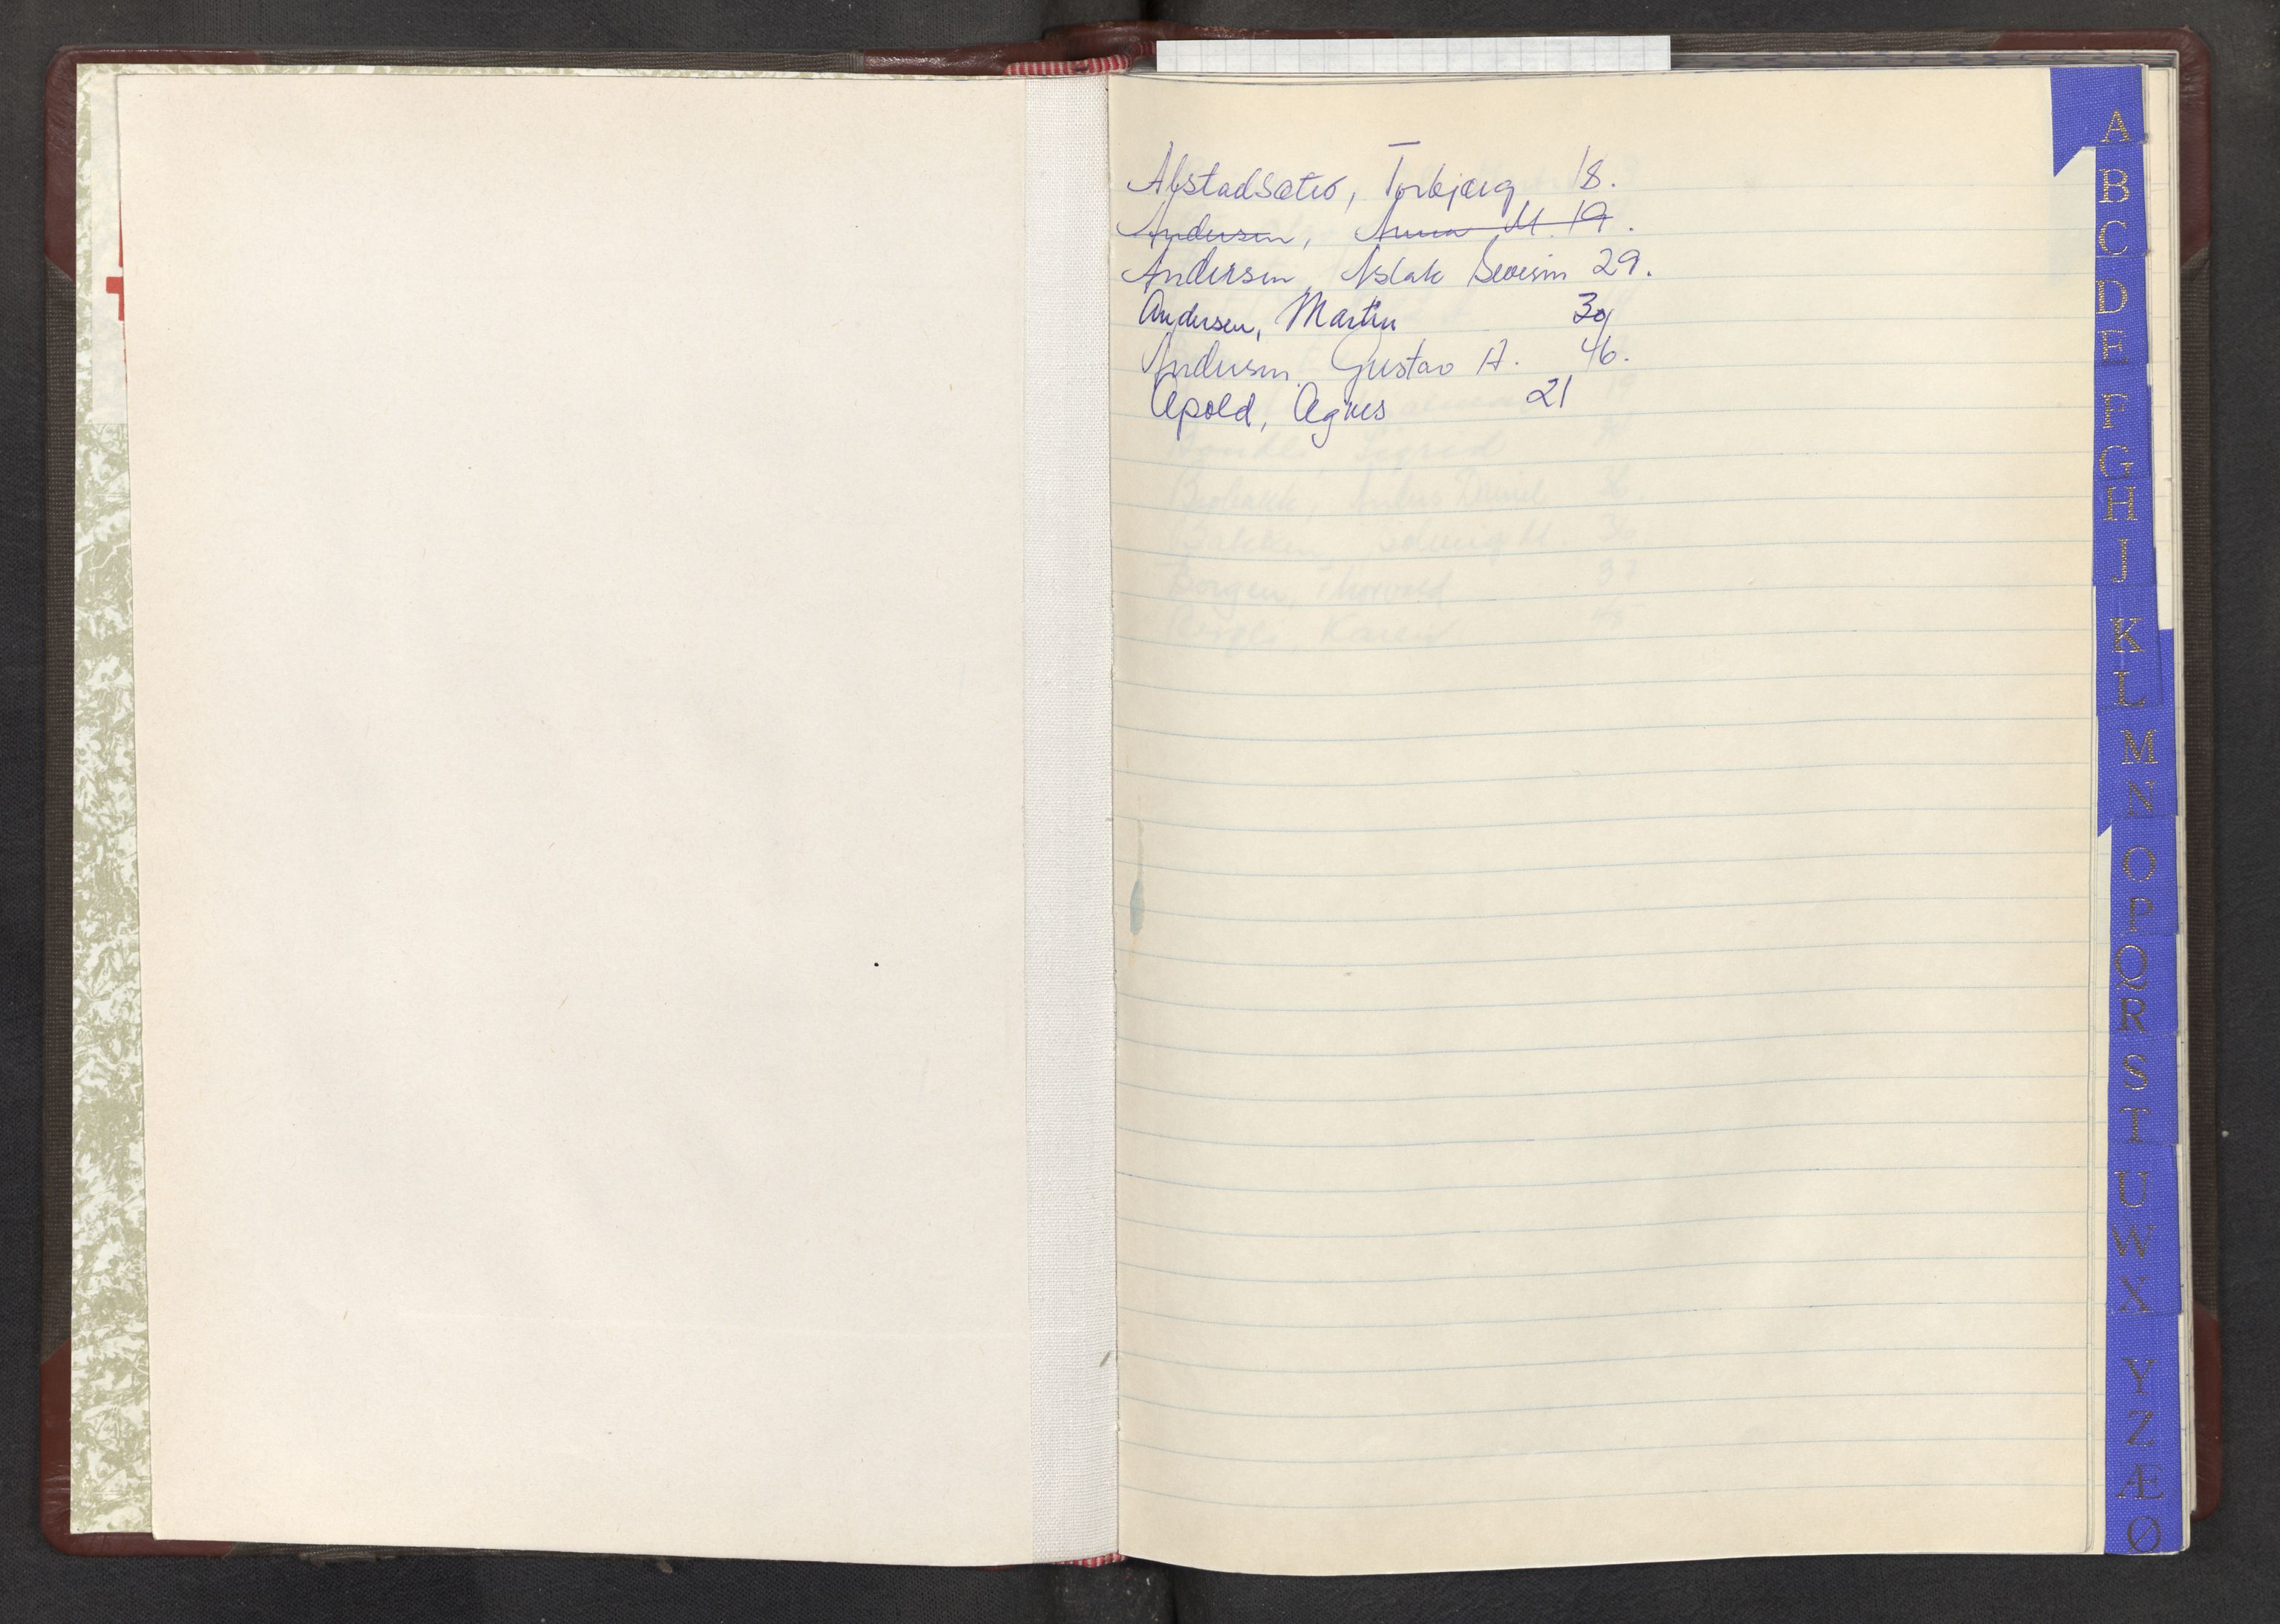 Torbjørg 18.
Andersen, Anna M. 19.
Andersen, Aslak Severin 29.
Andersen, Martin 30
Andersen Gustav A. 46.
Apold, Agnes 21
A
B
C
D
E
F
G
H
J
K
L
M
N
O
P
Q
R
S
T
U
W
X
Y
Z
Æ
Ø